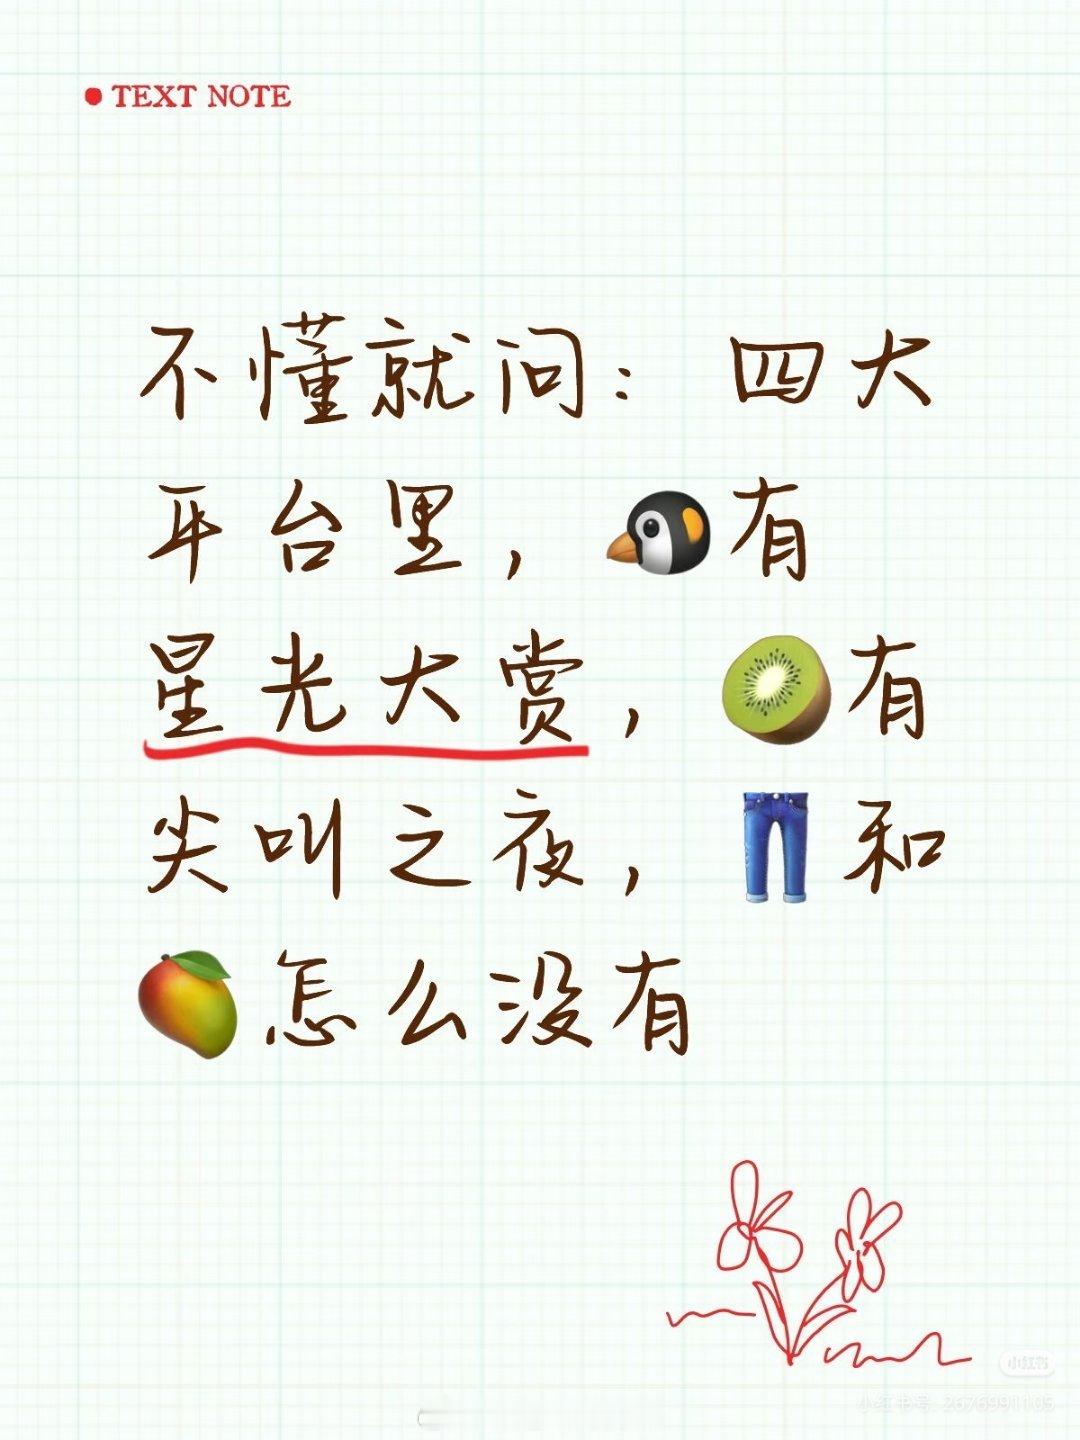 TEXT NOTE
不懂就问：四大
平台里，🐧有
星光大赏，🥝有
尖叫之夜，👖和
🥭怎么没有
小红书
小红书号: 2676991105